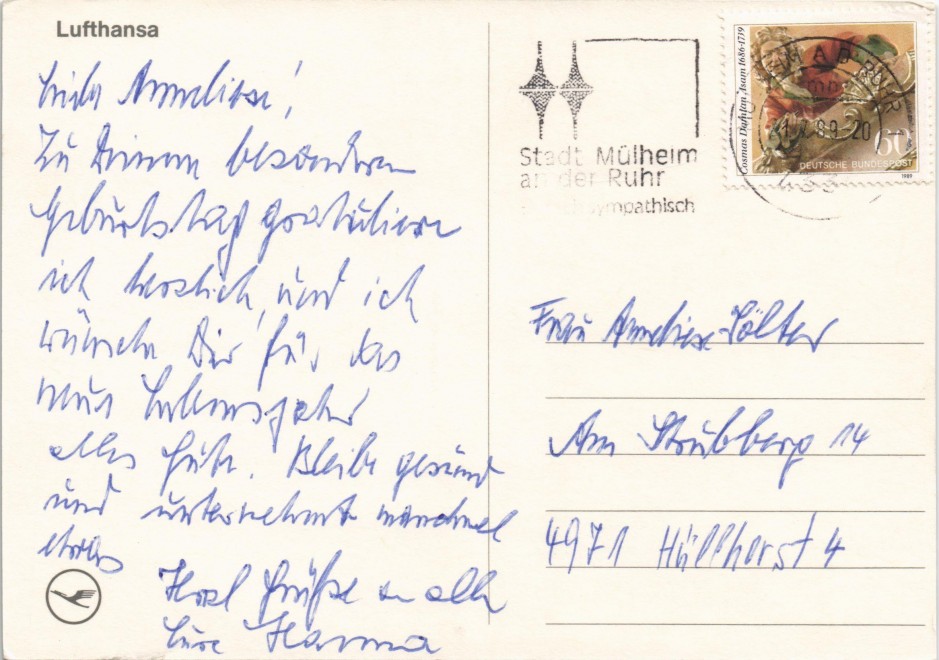 Lufthansa
Liebe Anneliese!
Zu Deinem besonderen
Geburtstag gratuliere
ich herzlich, und ich
wünsche Dir für das
neue Lebensjahr
alles Gute. Bleibe gesund
und unternehmt manchmal
etwas
Herzl Grüße an alle
Eure Hanna
Stadt Mülheim
an der Ruhr
sympathisch
Cosmas Damian Asam 1686-1739
60
DEUTSCHE BUNDESPOST
1989
Frau Anneliese Cölter
Am Strubberg 14
4971 Hüllhorst 4